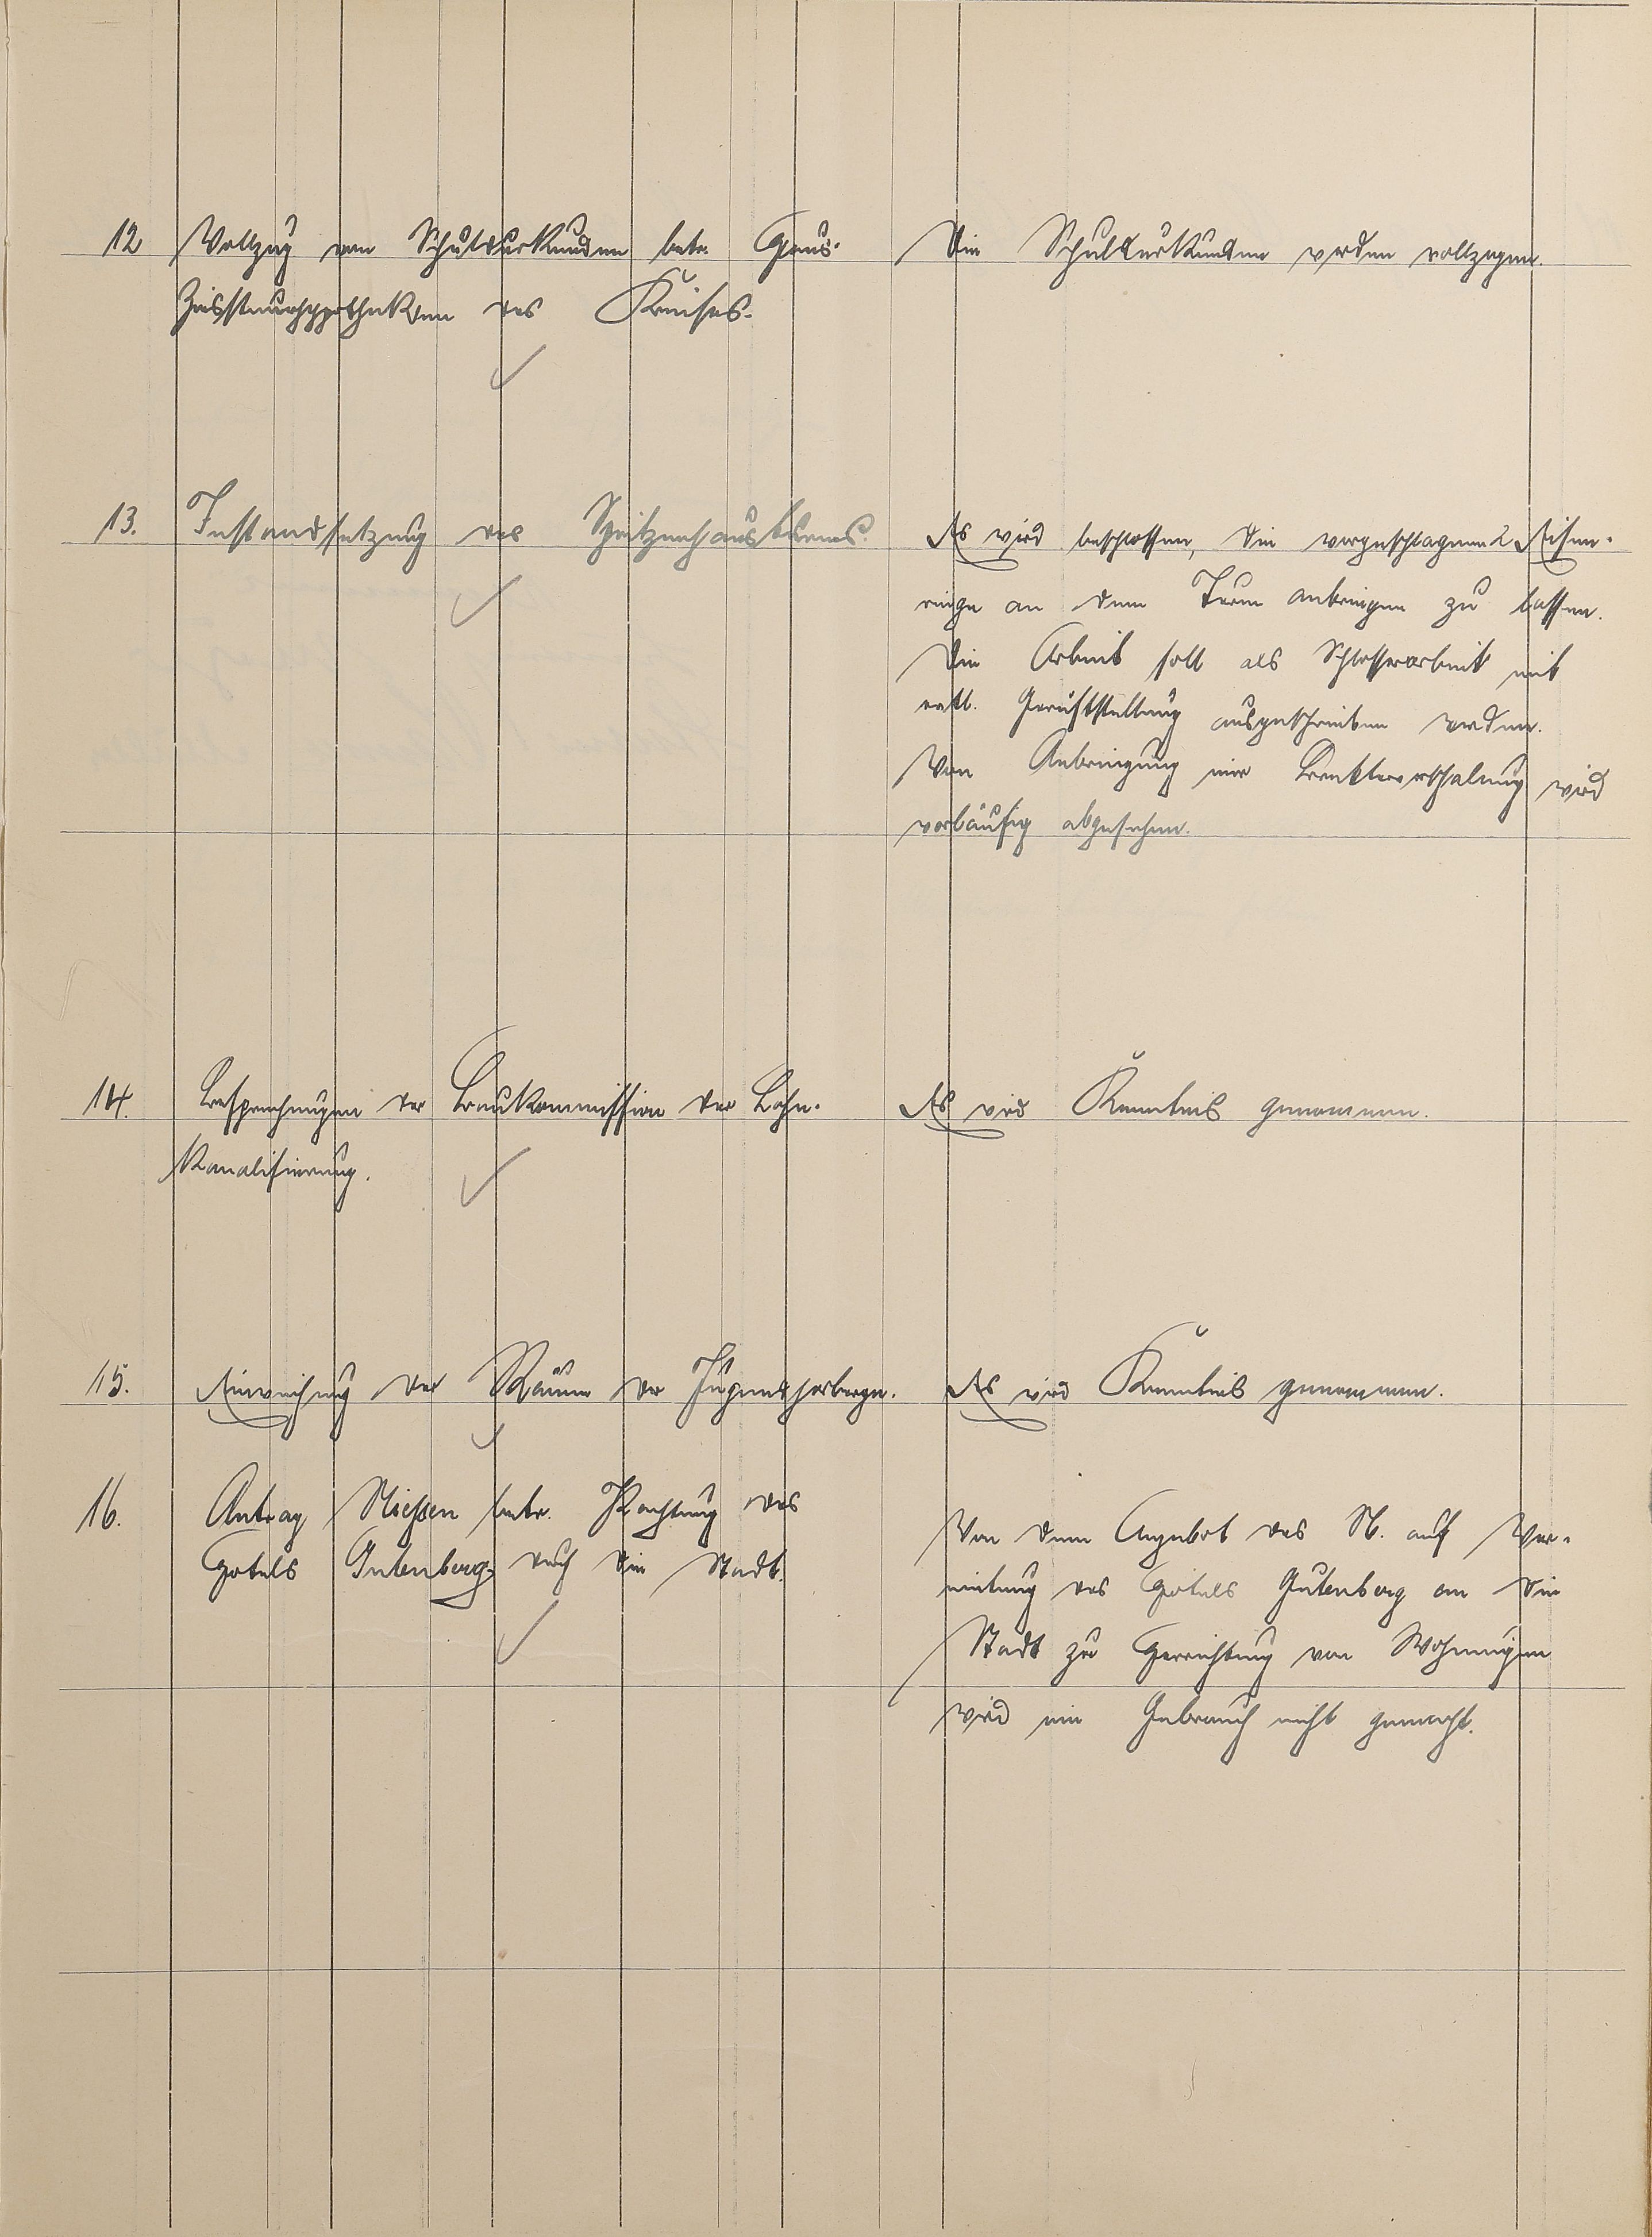 12 Vollzug von Schuldurkunden betr. Haus-
zinssteuerhypotheken des Kreises.
Die Schuldurkunden werden vollzogen.
13. Instandsetzung des Spitzenhausturmes.
Es wird beschlossen, die vorgeschlagenen 2 Eisen-
ringe an dem Turm anbringen zu lassen.
Die Arbeit soll als Schlosserarbeit mit
evtl. Gerüststellung ausgeschrieben werden.
Von Anbringung einer Bretterverschalung wird
vorläufig abgesehen.
14. Besprechungen der Baukommission der Lahn-
kanalisierung.
Es wird Kenntnis genommen.
15. Einweihung der Räume der Jugendherberge.
Es wird Kenntnis genommen.
16. Antrag Nießen betr. Pachtung des
Hotels Gutenberg durch die Stadt.
Von dem Angebot des N. auf Ver-
mietung des Hotels Gutenberg an die
Stadt zur Herrichtung von Wohnungen
wird ein Gebrauch nicht gemacht.